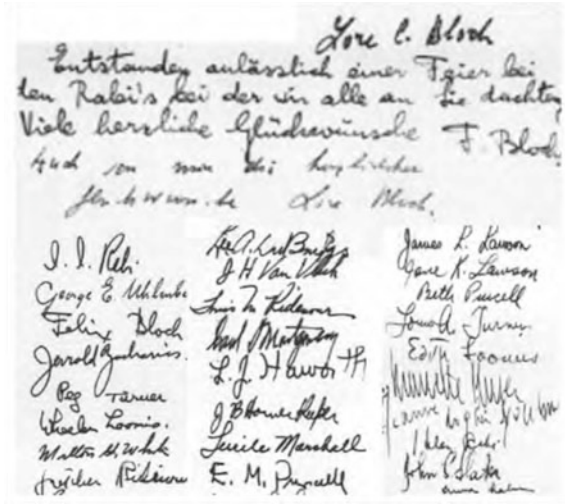 Lore C. Bloch
Entstanden anlässlich einer Feier bei
den Rabi's bei der wir alle an Sie dachten
Viele herzliche Glückwünsche F. Bloch
Auch von mir die herzlichsten
Lore Bloch.
I. I. Rabi.
George E. Uhlenbeck
Felix Bloch
Jerrold Zacharias.
Peg Turner
Wheeler Loomis.
Milton G. White
Gretchen Ridenour
Lee A. DuBridge
J H Van Vleck
Louis N Ridenour
Carol Montgomery
L. J. Haworth
J B Horner Kuper
Lucile Marshall
E. M. Purcell
James L. Lawson
Jane K. Lawson
Beth Purcell
Louis A. Turner
Edith Loomis
Henriette Kuper
Helen Rabi
John C. Slater